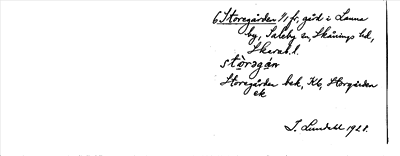 6. Storegården 1/1 fr. gård i Lanna
by, Saleby sn, Skånings hd,
Skarab. l.
stòrəgán
Storegården bek, Kb, Storgården
ek
I. Lundahl 1928.